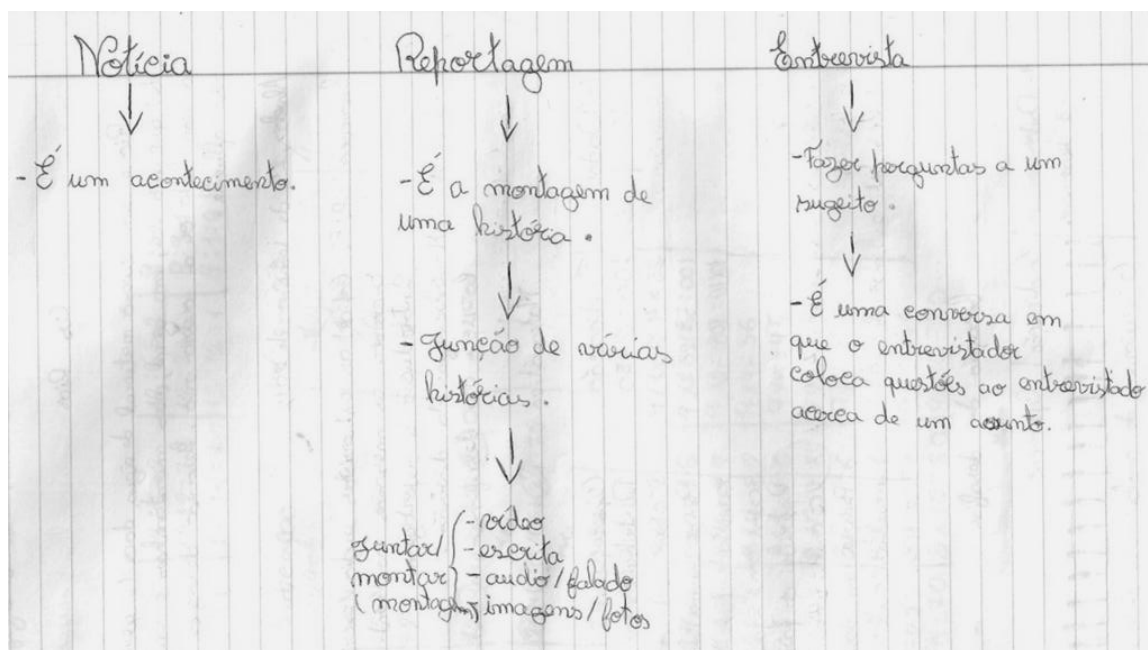 Notícia
- É um acontecimento.
Reportagem
- É a montagem de
uma história.
- Junção de várias
histórias.
Juntar/
montar
(montagem)
- vídeo
- escrita
- audio/falado
- imagens/fotos
Entrevista
- Fazer perguntas a um
sugeito.
- É uma conversa em
que o entrevistador
coloca questões ao entrevistado
acerca de um assunto.